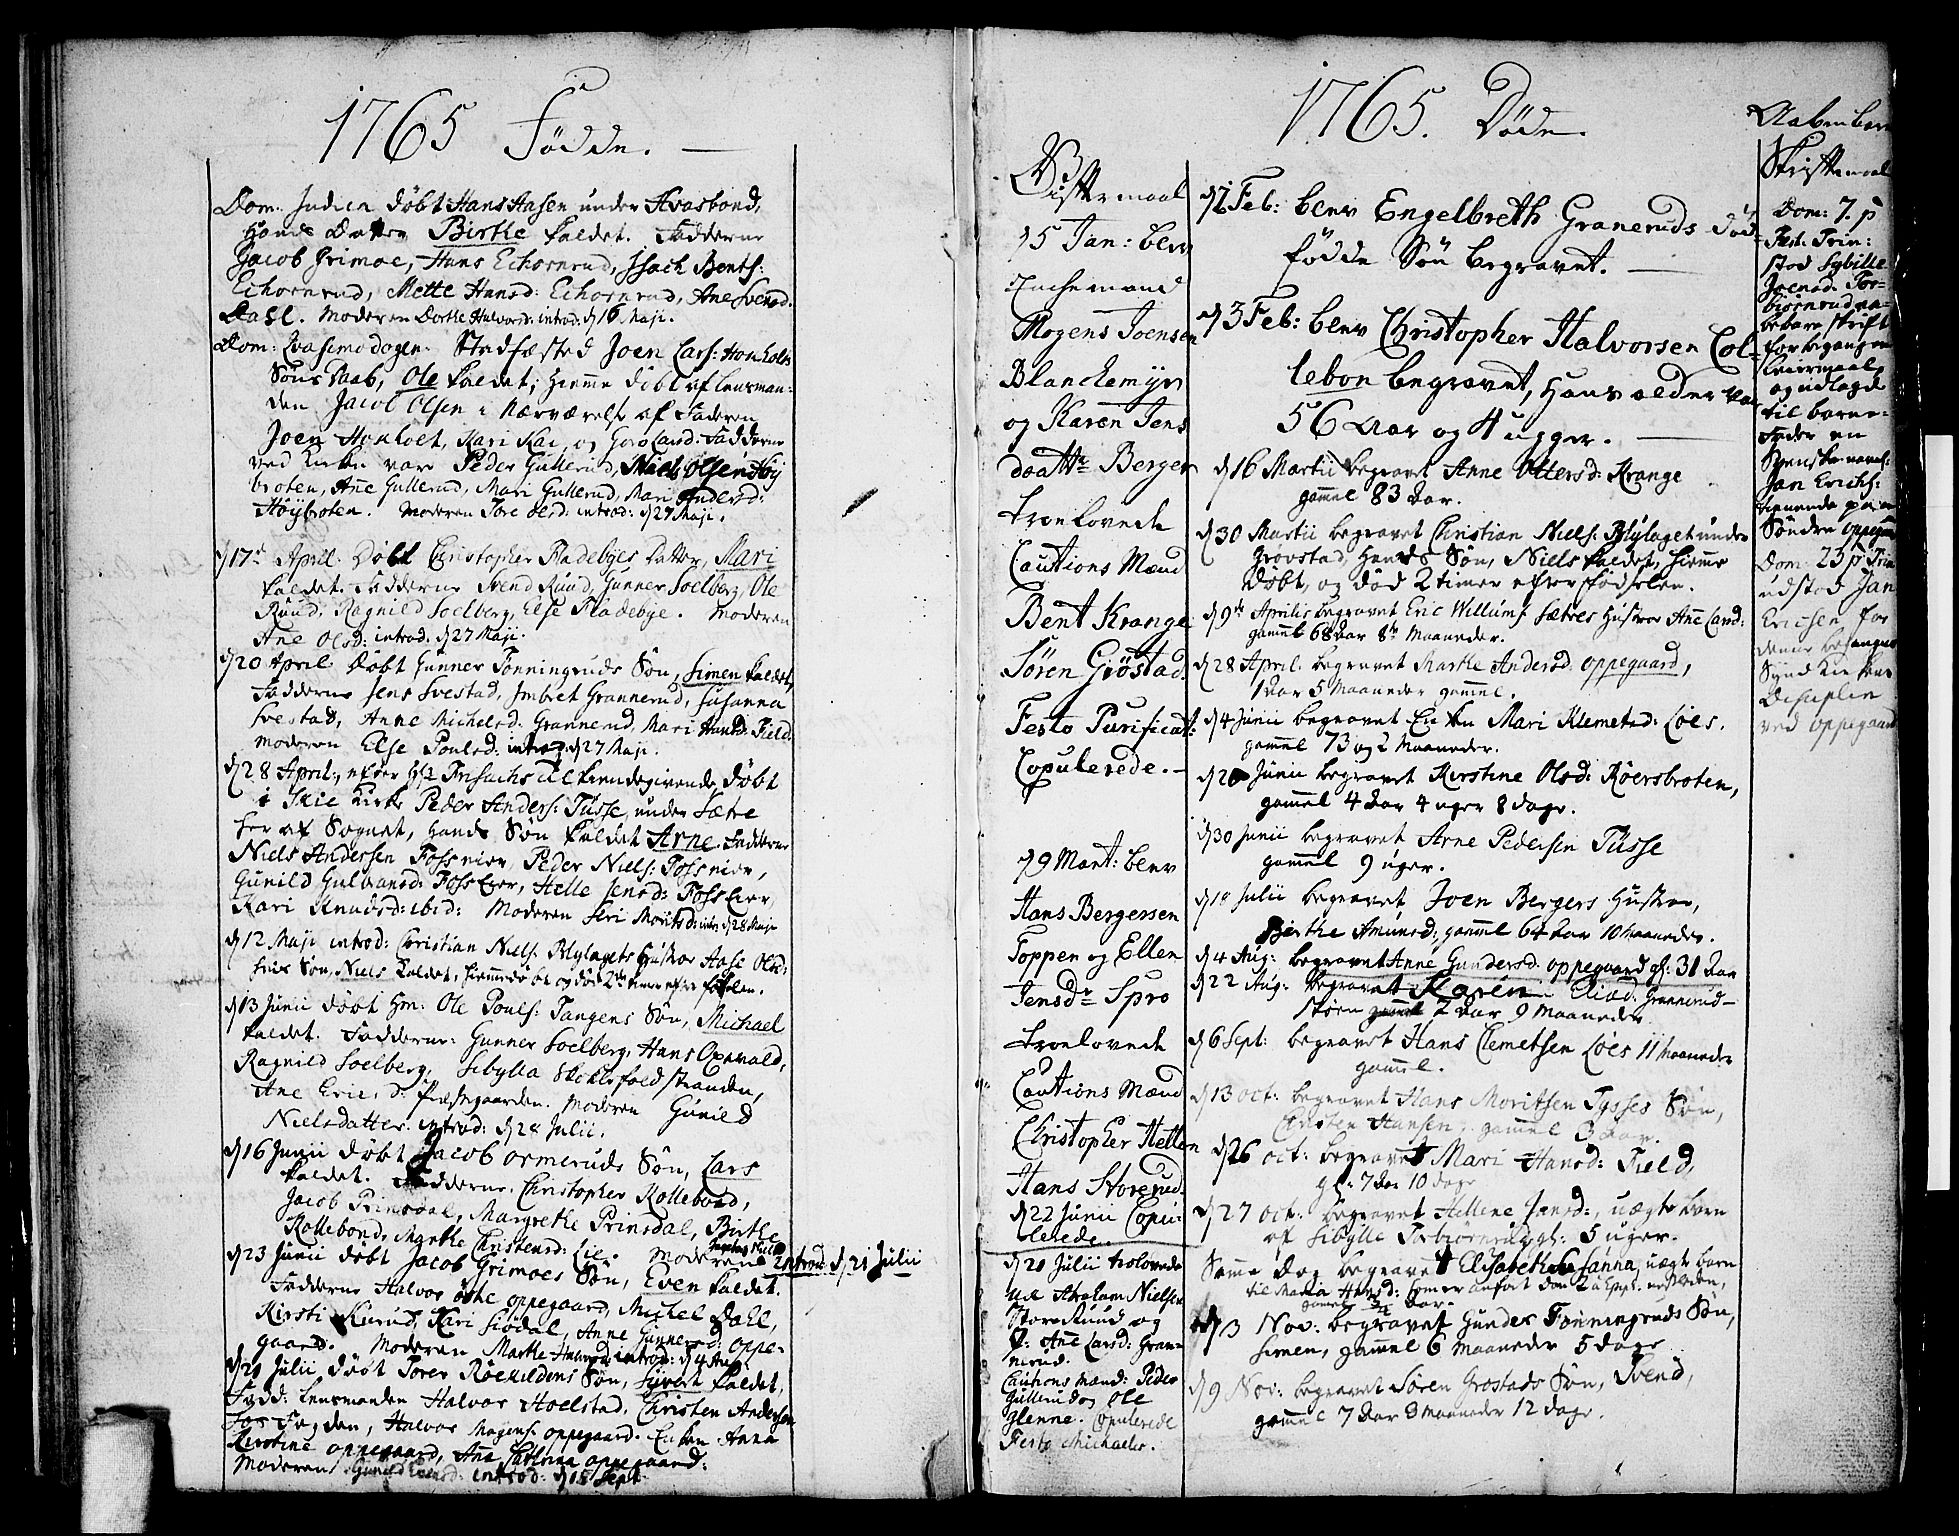 1765 Födde.
Dom: Judica döbt Hans Aasen under Hvasbond,
Hands Datter Birthe kaldet. Fadderne
Jacob Grimoe, Hans Echornrud, Isach Bents:
Echornrud, Mette Hansd: Echornrud, Ane Svensd.
Dahl. Moderen Dorthe Halvorsd: introd: d 16 Maji.
Dom: Qvasimodogen. Stedfæsted Joen Lars: Honholts
Söns Daab, Ole kaldet, hiemme döbt af Lensman-
den Jacob Olsen i Nærværelse af Faderen
Joen Honholt, Kari Kai, og Goro Larsd: Fadderne
ved Kirken var Peder Gullerud, Niels Olsen Höy
broten, Ane Gullerud, Mari Gullerud, Mari Andersd:
Höybroten. Moderen Tore Olsd: introd: d 27 Maji.
d 17de April: Döbt Christopher Fladebyes Datter, Mari
kaldet. Fadderne Svend Ruud, Gunner Soelberg, Ole
Ruud, Ragnild Soelberg, Else Fladebye. Moderen
Ane Olsd: introd. d 27 Maji.
d 20 April: Döbt Gunner Tönningruds Sön, Simen kaldet,
Fadderne Jens Svestad, Imbret Grannerud, Susanna
Svestad, Anne Michelsd: Grannerud, Mari Hansd: Field.
Moderen Else Poulsd: introd: d 27 Maji.
d 28 April:, efter Hr Friisachs tilkiendegivende, döbt
i Skie Kirke Peder Anders: Tusse, under Sætre
her af Sognet, Hands Sön kaldet Arne. Fadderne
Niels Andersen Fossneier, Peder Niels: Fossneier,
Gunild Gulbransd: Fosseier, Helle Jensd: Fosseier,
Kari Knudsd: ibid: Moderen Siri Moritsd: intr: d 28 Maji
d 12 Maji introd: Christian Niels: Blylagets Hustroe Aase Olsd:
hvis Sön, Niels kaldet, hiemmedöbt og död 2de timer efter födselen.
d 13 Junii döbt Hr: Ole Pouls: Tangens Sön, Michael
kaldet. Fadderne: Gunner Soelberg, Hans Opsvald,
Ragnild Soelberg, Sibylla Skoklefaldstranden,
Ane Erics d: Præstegaarden. Moderen Gunild
Nielsdatter. introd: d 28 Julii.
d 16 Junii döbt Jacob Ormeruds Sön, Lars
kaldet. Fadderne: Christopher Kollebond,
Jacob Prinsdal, Margrethe Prinsdal, Birthe
Kollebond, Marthe Christensd: Lie. Moderen introd: d 21 Julii
d 23 Junii döbt Jacob Grimoes Sön, Even kaldet.
Fadderne Halvor Oppegaard, Michel Dahl,
Kirsti Kurud, Kari Siödal, Anne Gunnersd: Oppe-
gaard. Moderen Marthe introd: d 4 Aug:
d 21 Julii döbt Torer Röeskildens Sön, Sivert kaldet,
Fadd: Lensmanden Halvor Hoelstad, Christen Andersen
Halvor Mogens: Oppegaard. Enken Anna
Kirstine Oppegaard, Ane Oppegaard:
Moderen Gunild introd: d 15 Sept
1765. Döde.
Byttemaal
d 5 Jan: blev
Enchemand
Mogens Joensen
Blanchemyr
og Karen Jens
daatter Berger
troelovede
Cautions Mænd
Bent Krange
Sören Gröstad.
Festo Purificat:
Copulerede.
d 9 Mart: blev
Hans Bergersen
Toppen og Ellen
Jensdr Spro
troelovede
Cautions Mænd
Christopher Hellen
Hans Storerud.
d 22 Junii Copu-
lerede.
d 20 Julii trolovede
Abraham Nielsen
Store Ruud og
P: Ane Larsd: Gran-
nerud.
Cautions Mænd: Peder
Gullerud og Ole
Glenne. Copulerede
Festo Michaelis.
d 2 Feb: blev Engelbreth Graneruds död-
födde Sön begravet.
d 3 Feb: blev Christopher Halvorsen Col-
lebon begravet, Hans alder var
56 Aar og 4 uger.
d 16 Martii begravet Anne Ottersd: Krange
gammel 83 Aar.
d 30 Martii begravet Christian Niels: Blylaget under
Grovstad, Hands Sön, Niels kaldet, hiemme
döbt, og död 2 timer efter födselen.
d 9de Aprilis begravet Eric Willums: Sætres Hustroe Ane Larsd:
gammel 68 Aar 8te Maaneder.
d 28 April: begravet Marthe Andersd. Oppegaard,
1 Aar 5 Maaneder gammel.
d 4 Junii begravet Enken Mari Klemetsd: Loes.
gammel 73 og 2 Maaneder.
d 20 Junii begravet Kirstine Olsd: Röersbroten,
gammel 4 Aar 4 uger 8 dage.
d 30 Junii begravet Arne Pedersen Tusse
gammel 9 uger.
d 18 Julii begravet Joen Bergers Hustroe,
Birthe Amunsd:, gammel 64 Aar 10 Maaneder.
d 4 Aug: begravet Anne Gundersd: Oppegaard gl: 31 Aar
d 22 Aug: begravet Karen Eliæd: Grannerud-
skoen gammel 2 Aar 9 Maaneder
d 6 Sept: begravet Hans Clemetsen Loes 11 Maaneder
gammel.
d 13 Oct: begravet Hans Moritsen Tysses Sön,
Christen Hansen, gammel 3 Aar.
d 26 Oct: begravet Mari Hansd: Field,
gl: 7 Aar 10 dage
d 27 Oct: begravet Hellene Jansd:, uægte barn
af Sibylle Torbiörnrud gl: 5 uger.
Samme Dag begravet Elisabeth Susanna, uægte barn
til Maria Hansd: som er anfört Dom 2
gammel 3/4 Aar.
d 3 Nov: begravet Gunder Tönningruds Sön,
Simen, gammel 6 Maaneder 5 dage
d 9 Nov: begravet Sören Grostads Sön, Svend,
gammel 7 Aar 3 Maaneder 12 dage.
Aabenbare
Skriftemaal
Dom: 7. p
Fest: Trin:
stod Sybille
Joensd. Tor-
biörnrud aa-
bebare skrift
for begangen
Leiermaal,
og udlagde
til barne-
fader en
Svensk navnl:
Jan Erichs:
tienende paa
Söndre Oppegaard
Dom. 23 p Trin
udstod Jan
Ericsen for
denne begangne
Synd Kirkens
Disciplin
ved Oppegaard